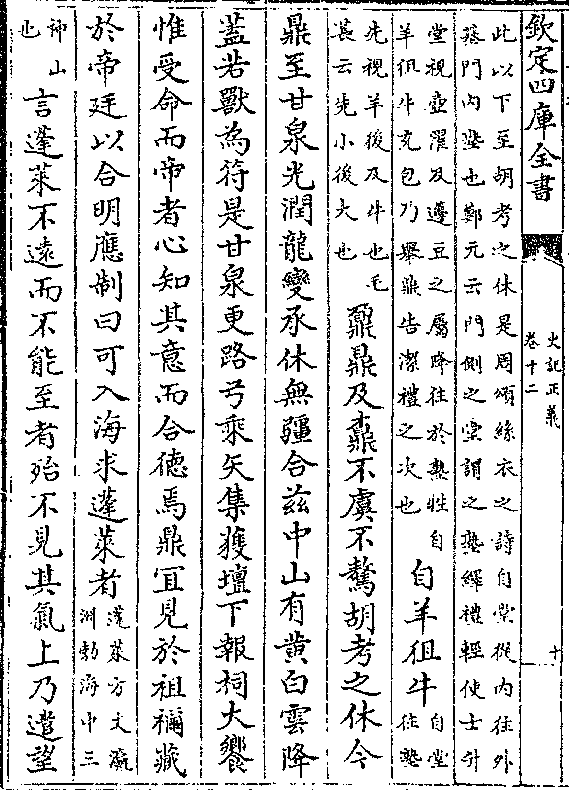 欽定四庫全書
史記正義
卷十二
十
此以下至胡考之休是周頌絲衣之詩自堂從内往外
基門内塾也鄭元云門側之堂謂之塾繹禮輕使士升
堂視壺濯及籩豆之屬降往於熟牲自
羊徂牛充包乃舉鼎告潔禮之次也
自羊徂牛
自堂
往塾
先視羊後及牛也毛
萇云先小後大也
鼐鼎及鼒不虞不驁胡考之休今
鼎至甘泉光潤龍變承休無疆合兹中山有黄白雲降
蓋若獸為符是甘泉更路弓乘矢集獲壇下報祠大饗
惟受命而帝者心知其意而合德焉鼎宜見於祖禰藏
於帝廷以合明應制曰可入海求蓬萊者
蓬萊方丈瀛
洲勃海中三
神山
也
言蓬萊不遠而不能至者殆不見其氣上乃遣望